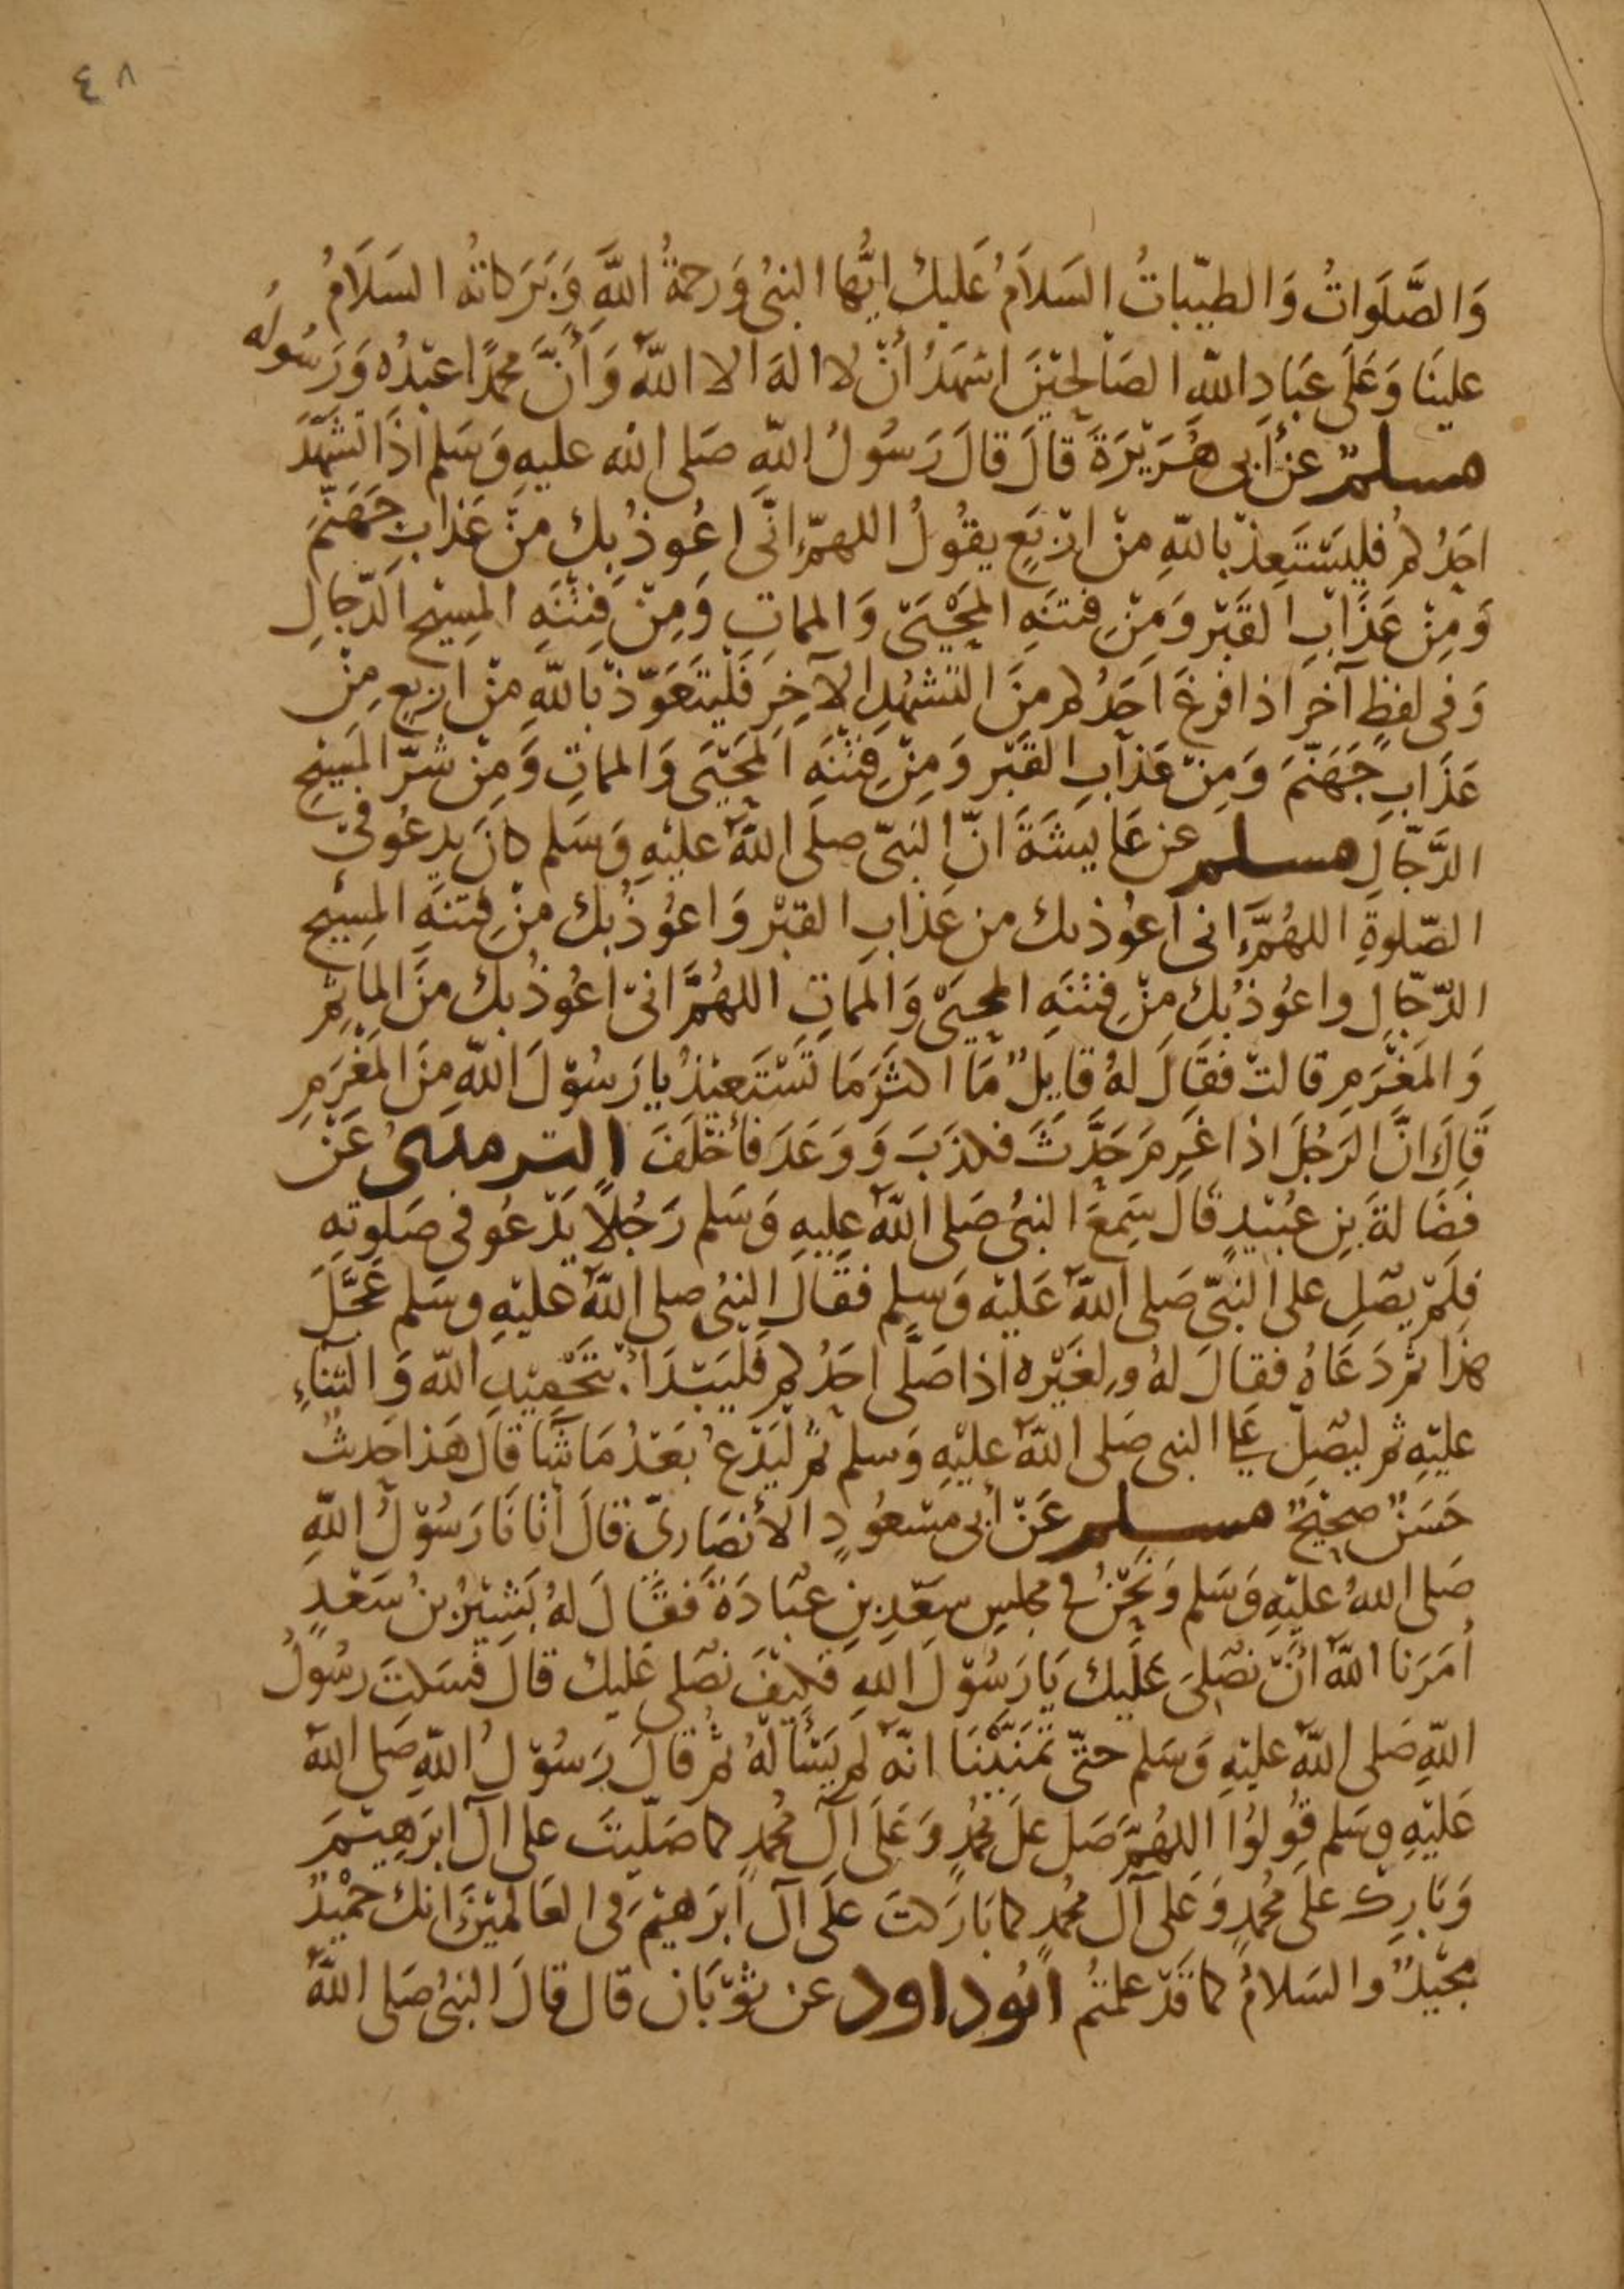 ٤٨
وَالصَّلَوَاتُ وَالطيّباتُ السَلاَمُ عَليك ايُّها النبىُ وَرحمةُ اللَّهِ وَبَرَكاتهُ السَلَامُ
علينَا وَعَلَى عبَادِ اللّهِ الصَالحِيْنَ اشهَدُ أنْ لا الهَ الا اللّهُ وَأَنَّ محمدًا عبْدُه وَرَسُولُه
مسلم عنْ أَبى هُرَيْرَةَ قالَ قالَ رَسُولُ اللّهِ صَلى الله عليهِ وَسَلم اذَا تشَهّدَ
احَدُكم فليَسْتَعِذْ باللّهِ منْ ارْبَعٍ يقُولُ اللهمّ انّى اعُوذُبك منْ عَذابِ جَهَنّمَ
وَمِنْ عَذَابِ القَبْر وَمِنْ فتنَهِ المَحْيَى وَالمماتِ وَمِنْ فِتْنَهِ المسِيْح الدّجالِ
وَفى لفظٍ آخر اذا فرغَ احَدُكم منَ التشهُدِ الآخِرِ فَلْيتَعَوّذْ باللّهِ منْ اربعٍ مِنْ
عَذَابِ جَهَنّمَ وَمِنْ عَذابِ القَبْر وَمِنْ فِتْنَهِ المَحْيَى وَالمماتِ وَمِنْ شرّ المَسِيْحِ
الدَّجّالِ مسلم عن عَايشَةَ انّ النَبىّ صلَى اللّهُ عليْهِ وَسَلم كانَ يدعُو فى
الصّلوةِ اللهُمَّ انى اعوُذبك من عَذَابِ القبْر وَاعوُذُبك منْ فِتنَهِ المسِيْح
الدّجّالِ واعوُذُبك مِنْ فِتْنَهِ المحيَى وَالمماتِ اللهُمَّ انىْ اعُوذُبك منَ المأثمِ
وَالمَغْرَمِ قالتْ فقَالَ لهُ قايلٌ مَا اكثَرَ مَا تَسْتَعيْذُ يا رَسُوْلَ اللّهِ منَ المَغْرَمِ
قَالَ انَّ الرَجُلَ اذا غَرِمَ حَدَّثَ فكذَبَ وَوَعَدَ فأخْلَفَ الترمذى عَنْ
فضَالةَ بنِ عُبَيْدٍ قالَ سَمِعَ النبىُ صَلى اللّهُ عليهِ وَسَلم رَجُلًا يَدْعُو فى صَلوتهِ
فلَمْ يصَلِ على النبىّ صَلى اللّهُ عَليْه وَسلم فقَالَ النبىُ صلى اللّهُ عليْهِ وسَلم عَجَّلَ
هذَا ثم دَعَاهُ فقالَ لهُ ولغَيْره اذا صَلَّى احَدُكم فَليَبْدَأ بتَحْمِيْدِ اللّه وَالثناءِ
عليْهِ ثم ليصَلِ على النبى صَلى اللّهُ عليْهِ وَسلم ثم ليَدْعُ بَعْدُ مَا شَا قالَ هَذا حَديثٌ
حَسَنٌ صحِيْحٌ مسلم عَنْ أَبى مَسْعوُدٍ الأنصَارىّ قالَ أتَانَا رَسُوْلُ اللّهِ
صَلى اللهُ عليْهِ وَسَلم وَنَحْنُ فى مجلسِ سَعْدِ بنِ عبَادَةَ فقَالَ لهُ بَشِيْرُ بنُ سَعْدٍ
أمَرَنا اللّهُ أنْ نصَلىَ عَلَيك يَا رَسُوْلَ اللهِ فكيْفَ نصَلى عَليك قالَ فسَكتَ رسُولُ
اللّهِ صَلى اللّهُ عليْهِ وَسَلم حتّى تمَنَيْنَا انّه لم يَسْألهُ ثم قالَ رَسُوْلُ اللّهِ صَلى اللّهُ
عَليْهِ وسَلم قُولوُا اللهُمَّ صَل علَى محُمدٍ وَعَلَى آل محُمدٍ كما صَلّيتَ على آل ابرَهِيْمَ
وَبَارِك علَى محُمدٍ وَعَلى آل محُمدٍ كما بَارَكتَ علَى آل ابْرَهيْمَ فى العَالميْنَ انك حَمْيدٌ
مجَيْدٌ والسَلامُ كما قَدْ علمتُم ابوُداود عن ثوْبَان قال قالَ النبىُ صَلى اللّهُ